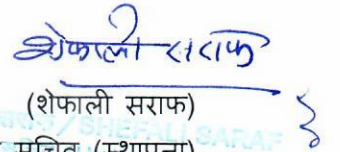 शेफाली सराफ
(शेफाली सराफ)
/SHEFALI SARAF
सचिव (स्थापना)